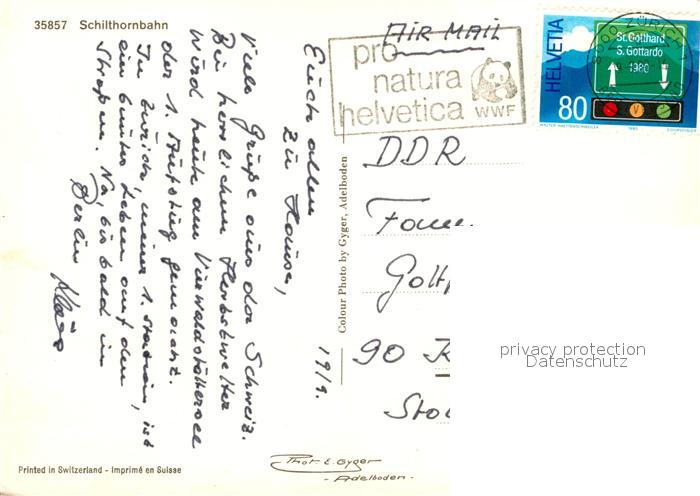 35857 Schilthornbahn
AIR MAIL
pro
natura
helvetica
WWF
HELVETIA
St. Gotthard
S. Gottardo
1980
80
V
8000 ZÜRICH
Euch allen
zu Hause,
19/9.
Viele Grüße aus der Schweiz.
Bei herrlichem Herbstwetter
wird heute am Vierwaldstättersee
der 1. Aufstieg gemacht.
In Zürich, meiner 1. Station, ist
ein buntes Leben auf den
Straßen. Na, bis bald in
Berlin Klaus
Colour Photo by Gyger, Adelboden
DDR
Fam
Gott
90 K
Sto
privacy protection
Datenschutz
Printed in Switzerland - Imprimé en Suisse
Phot. E. Gyger
- Adelboden -